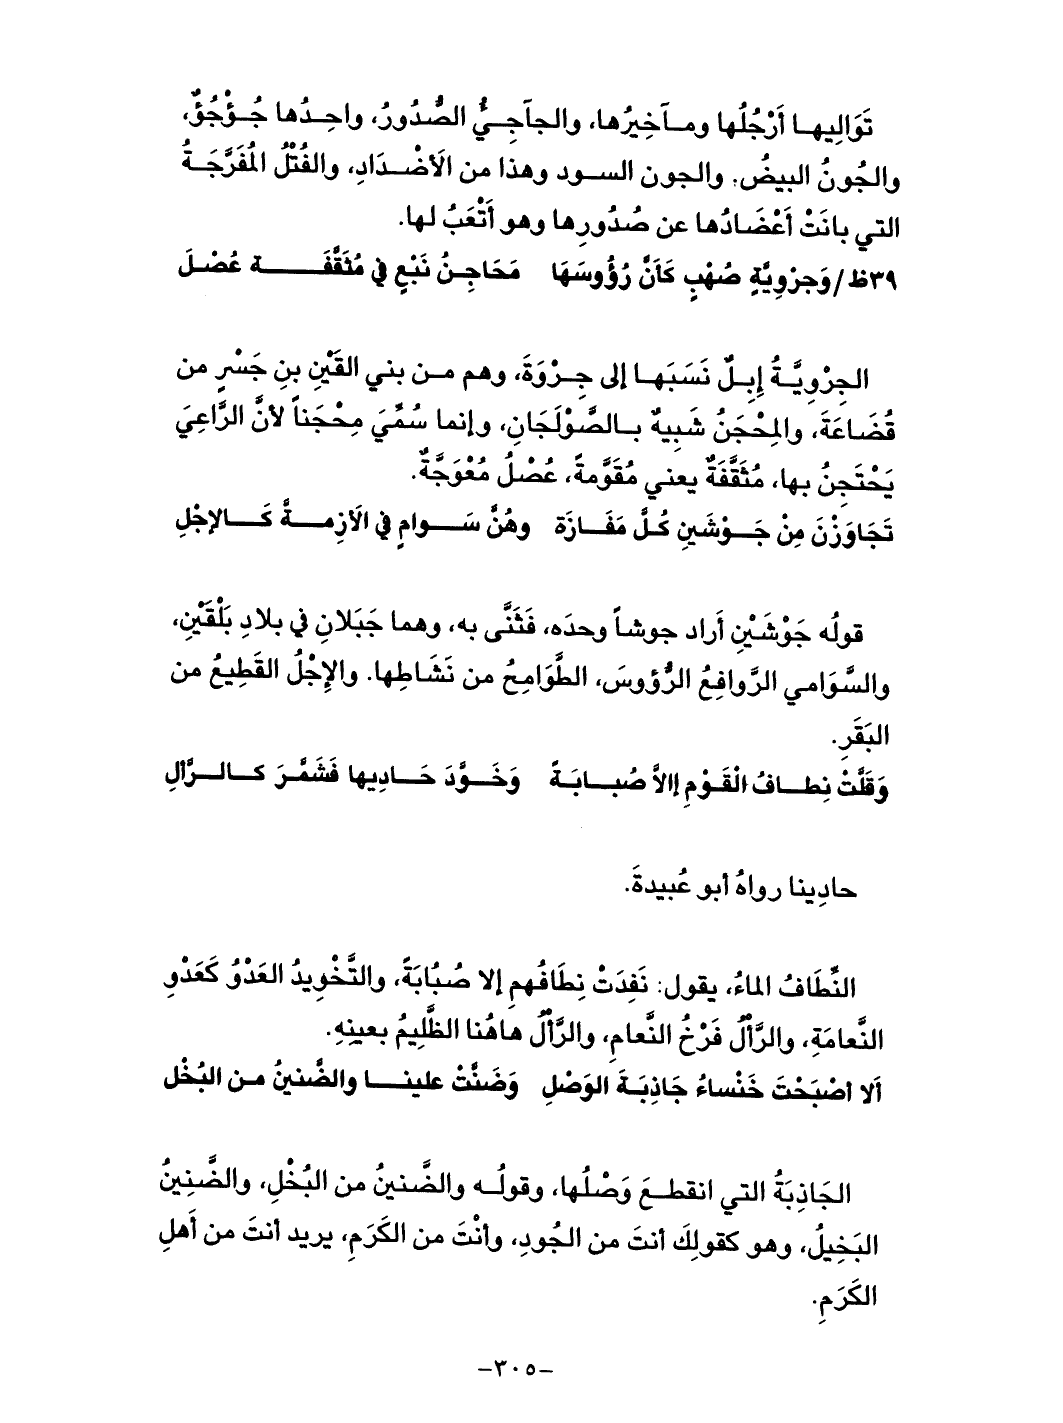 تَوَالِيهـا أَرْجُلُها ومـآخِيرُها، والجآجِـيُّ الصُّدُورُ، واحِـدُها جُـؤْجُؤٌ،
والجُونُ البيضُ. والجون السـود وهذا من الأَضْـدَادِ، والفُتْلُ المُفَرَّجَـةُ
التي بانَتْ أعْضَادُها عن صُدُورِها وهو أتْعَبُ لها.
٣٩ظ/وَجرْوِيَّةٍ صُهْبٍ كَأَنَّ رُؤُوسَهَا مَحَاجِـنُ نَبْعٍ في مُثَقَّفَـــــة عُصْـلَ
الجِرْوِيَّـةُ إبِـلٌ نَسَبَهـا إلى جِـرْوَةَ، وهم مـن بني القَيْنِ بنِ جَسْرٍ من
قُضَـاعَةَ، والمِحْجَنُ شَبِيهٌ بـالصَّوْلَجَانِ، وإنما سُمِّيَ مِحْجَناً لأنَّ الرَّاعِيَ
يَحْتَجِنُ بها، مُثَقَّفَةٌ يعني مُقَوَّمةً، عُصْلُ مُعْوَجَّةٌ.
تَجَاوَزْنَ مِنْ جَـــوْشَينِ كُـلَّ مَفَــازَة وهُنَّ سَـــوامٍ في الأزِمـــةَّ كَـــالإجْلِ
قولُه جَوْشَيْنِ أراد جوشاً وحدَه، فَثَنَّى به، وهما جَبَلانِ في بلادِ بَلْقَيْنِ،
والسَّوَامي الرَّوافِعُ الرُّؤوسَ، الطَّوَامِحُ من نَشَاطِها. والإجْلُ القَطِيعُ من
البَقَرِ.
وَقَلَّتْ نِطـافُ الْقَـوْمِ إالاَّ صُبـابَـةً وَخَـــوَّدَ حَـــاديها فَشَمَّـرَ كـــالـــرَّألِ
حادِينا رواهُ أبو عُبيدةَ.
النِّطَافُ الماءُ، يقول: نَفِدَتْ نِطَافُهمِ إلا صُبَابَةً، والتَّخْوِيدُ العَدْوُ كَعَدْوِ
النَّعامَةِ، والرَّألُ فَرْخُ النَّعامِ، والرَّألُ هاهُنا الظَّلِيمُ بعينِهِ.
ألا أصْبَحْتَ خَنْساءُ جَاذِبَـةَ الوَصْلِ وَضَنَّتْ علينـــا والضَّنينُ مـن البُخْل
الجَاذِبَةُ التي انقطـعَ وَصْلُها، وقولُـه والضَّنينُ من البُخْلِ، والضَّنِينُ
البَخِيلُ، وهو كقولِكَ أنتَ من الجُودِ، وأنْتَ من الكَرَمِ، يريد أنتَ من أهلِ
الكَرَمِ.
–٣٠٥–